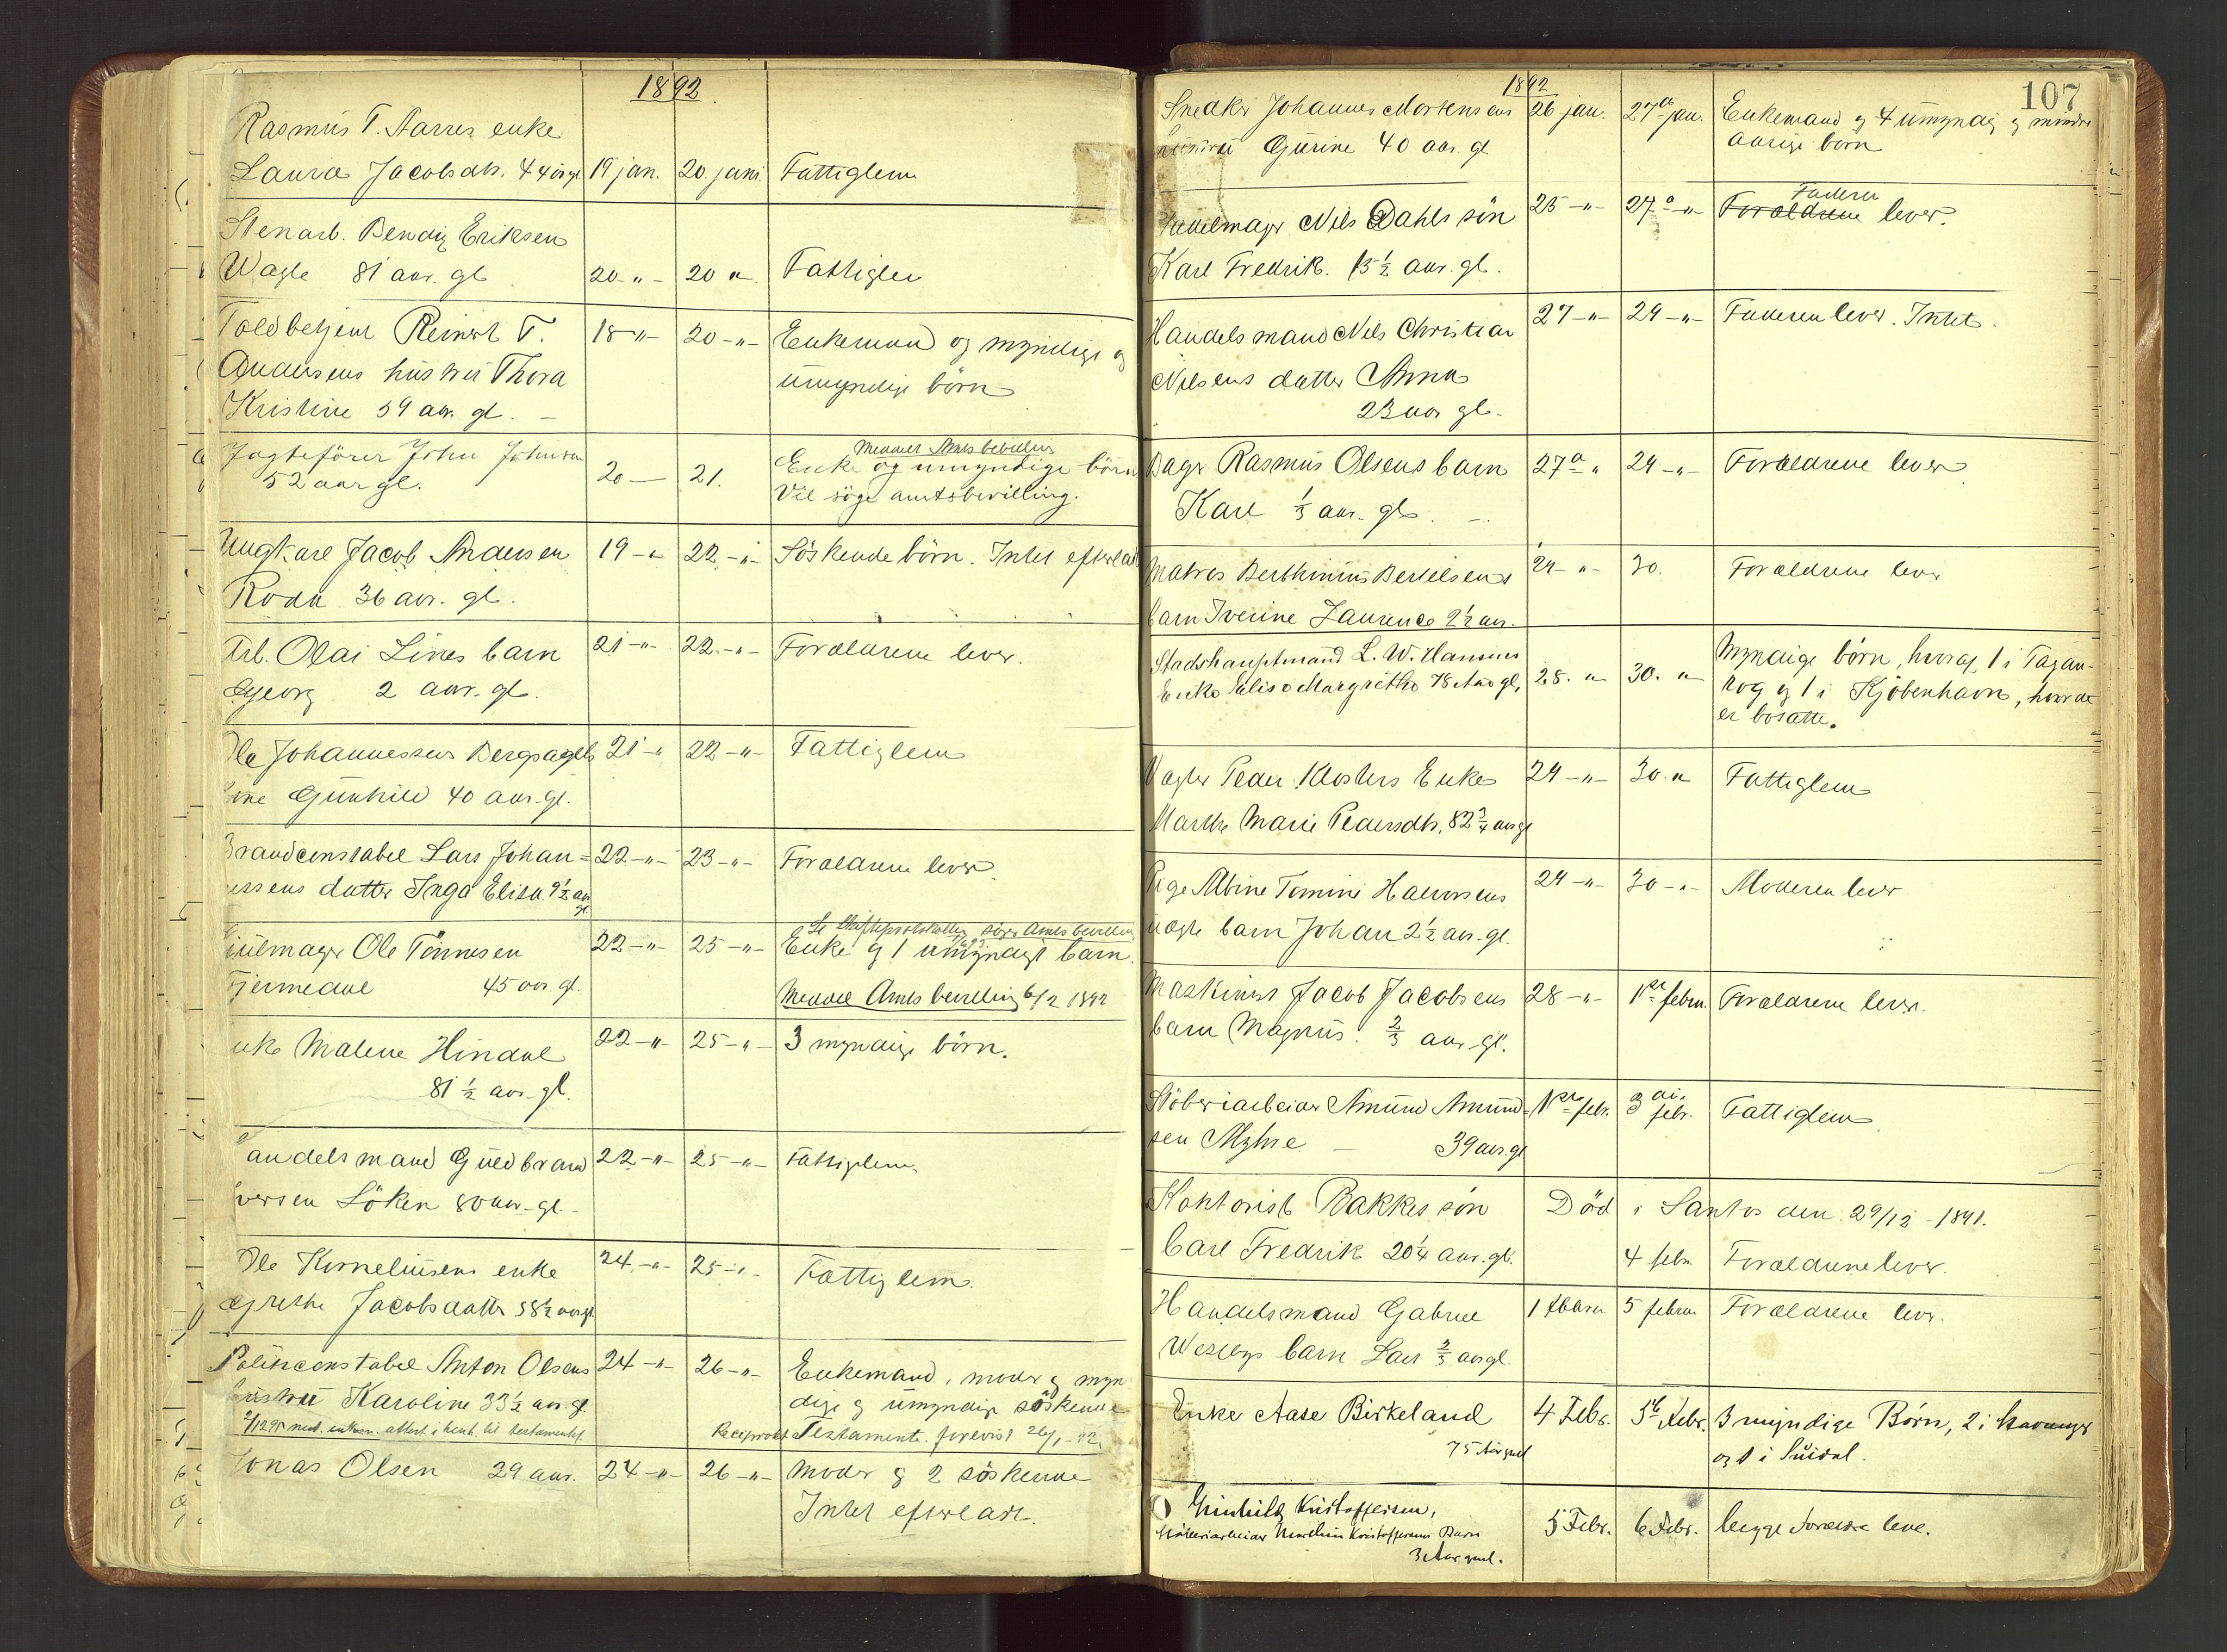 1892
Rasmus T. Aarrez enke
Laura Jacobsdtr. 44 aar gl. 19 jan. 20. jani. Fattiglem
Stenarb. Bendig Eriksen
Wagle 81 aar. gl. 20 - " - 20 " Fattiglem
Toldbetjent Reinert T. 18 - " - 20 - " - Enkemand og myndige og
Andersens hustru Thora umyndige börn
Kristine 59 aar. gl. -
Jagtefører John Johnsen Meddelt Amtsbevilling
52 aar gl. 20 — 21. Enke og umyndige börn
Vil söge amtsbevilling.
Ungkarl Jacob Andersen 19 - " 22 - " - Söskendebörn. Intet efterladt
Roda 36 aar. gl.
Arb. Olai Lines barn 21 - " - 22. - " - Forældrene lever.
Georg 2 aar. gl.
Ole Johannessens Bergsagels 21 - " 22 - " - Fattiglem
Gunhild 40 aar. gl.
Brandconstabel Lars Johan= 22 - " - 23 - " - Forældrene lever.
nessens datter Inga Elisa 9½ aar
gl.
Se Skifteprotokollen, söger Amtsbevilling
Hjulmager Ole Tönnesen 22 - " - 25 - " - Enke og 1 umyndigt barn.
Fjermedal 45 aar. gl. Meddelt Amtsbevilling 6/2 1892
Enke Malene Hindal 22 - " - 25 - " - 3 myndige börn.
81 ½ aar. gl.
Handelsmand Guldbrand 22 - " - 25 - " - Fattiglem.
Iversen Löken 80 aar. gl. -
Ole Korneliusens enke 24. - " - 25 - " - Fattiglem.
Grethe Jacobsdatter 58½ aar gl.
Politiconstabel Anton Olsens 24 - " - 26 - " - Enkemand, moder og myn
hustru Karoline 33½ aar. gl. dige og umyndige söskende
attest. i henh. til testamentet. Reciprokt Testamente. forevist 26/1 - 92.
Jonas Olsen 29 aar. 24 - " - 26 - " - Moder og 2 söskende
Intet efterladt.
1892
107
Snedker Johannes Mortensens 26 jan. 27de jan. Enkemand og 4 umyndig og mindre
hustru Gurine 40 aar. gl. aarige börn
Faderen
Nils Dahls sön 25 - " - 27de - " - Forældrene lever.
Karl Fredrik. 13½ aar. gl.
Handelsmand Nils Christian 27 - " - 29 - " - Faderen lever. Intet.
Nilsens datter Anna
23 aar gl.
Bager Rasmus Olsens barn 27de " 29 - " - Forældrene lever
Karl ⅓ aar. gl.
Matros Berthinius Bertelsens 29 - " - 30. Forældrene lever
barn Iverine Laurence 2½ aar.
Stadshauptmand L. W. Hansens Myndige börn, hvoraf 1 i Tagan-
Enke Elise Margrethe 78 Aar gl, 28. " 30. " rog og 1 i Kjöbenhavn, hvor de
er bosatte.
Vagter Peder Klosters Enke 29 - " - 30. " Fattiglem
Marthe Marie Pedersdtr. 82 ¾ aar gl
Pige Albine Tomine Halvorsens 29 - " - 30 - " - Moderen lever
uægte barn Johan 2½ aar. gl.
Maskinist Jacob Jacobsens 28 - " - 1ste febru. Forældrene lever.
barn Magnus. ⅔ aar. gl.
Stöberiarbeider Amund Amund= 1ste febr. 3die febr. Fattiglem
sen Myhre — 39 aar gl
Kontorist Bakkes sön Död i Santos den 29/12 - 1891.
Carl Fredrik 20¼ aar. gl. 4 febr. Forældrene lever.
Handelsmand Gabriel 1 februar 5 februar Forældrene lever.
Weslys barn Lars ⅔ aar gl.
Enke Aase Birkeland 4 Febr. 5te Febr. 3 myndige Börn, 2 i Stavanger
75 Aar gml og 1 i Suldal.
Gunhild Kristoffersen,
Stöberiarbeider Marthin Kristoffersens Barn 5 Febr. 6 Febr. begge Forældre leve.
3 Aar gml.